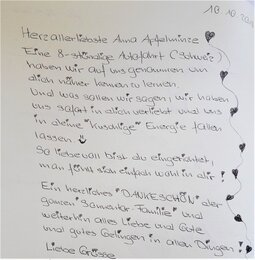 10.10.20
Herzallerliebste Anna Apfelminze
Eine 8-stündige Autofahrt (Schweiz)
haben wir auf uns genommen um
dich näher kennen zu lernen.
Und was sollen wir sagen, wir haben
uns sofort in dich verliebt und uns
in deine "kuschlige" Energie fallen
lassen
So liebevoll bist du eingerichtet,
man fühlt sich einfach wohl in dir!
Ein herzliches "DANKESCHÖN" der
ganzen Familie und
weiterhin alles Liebe und Gute
und gutes Gelingen in allen Dingen!
Liebe Grüsse